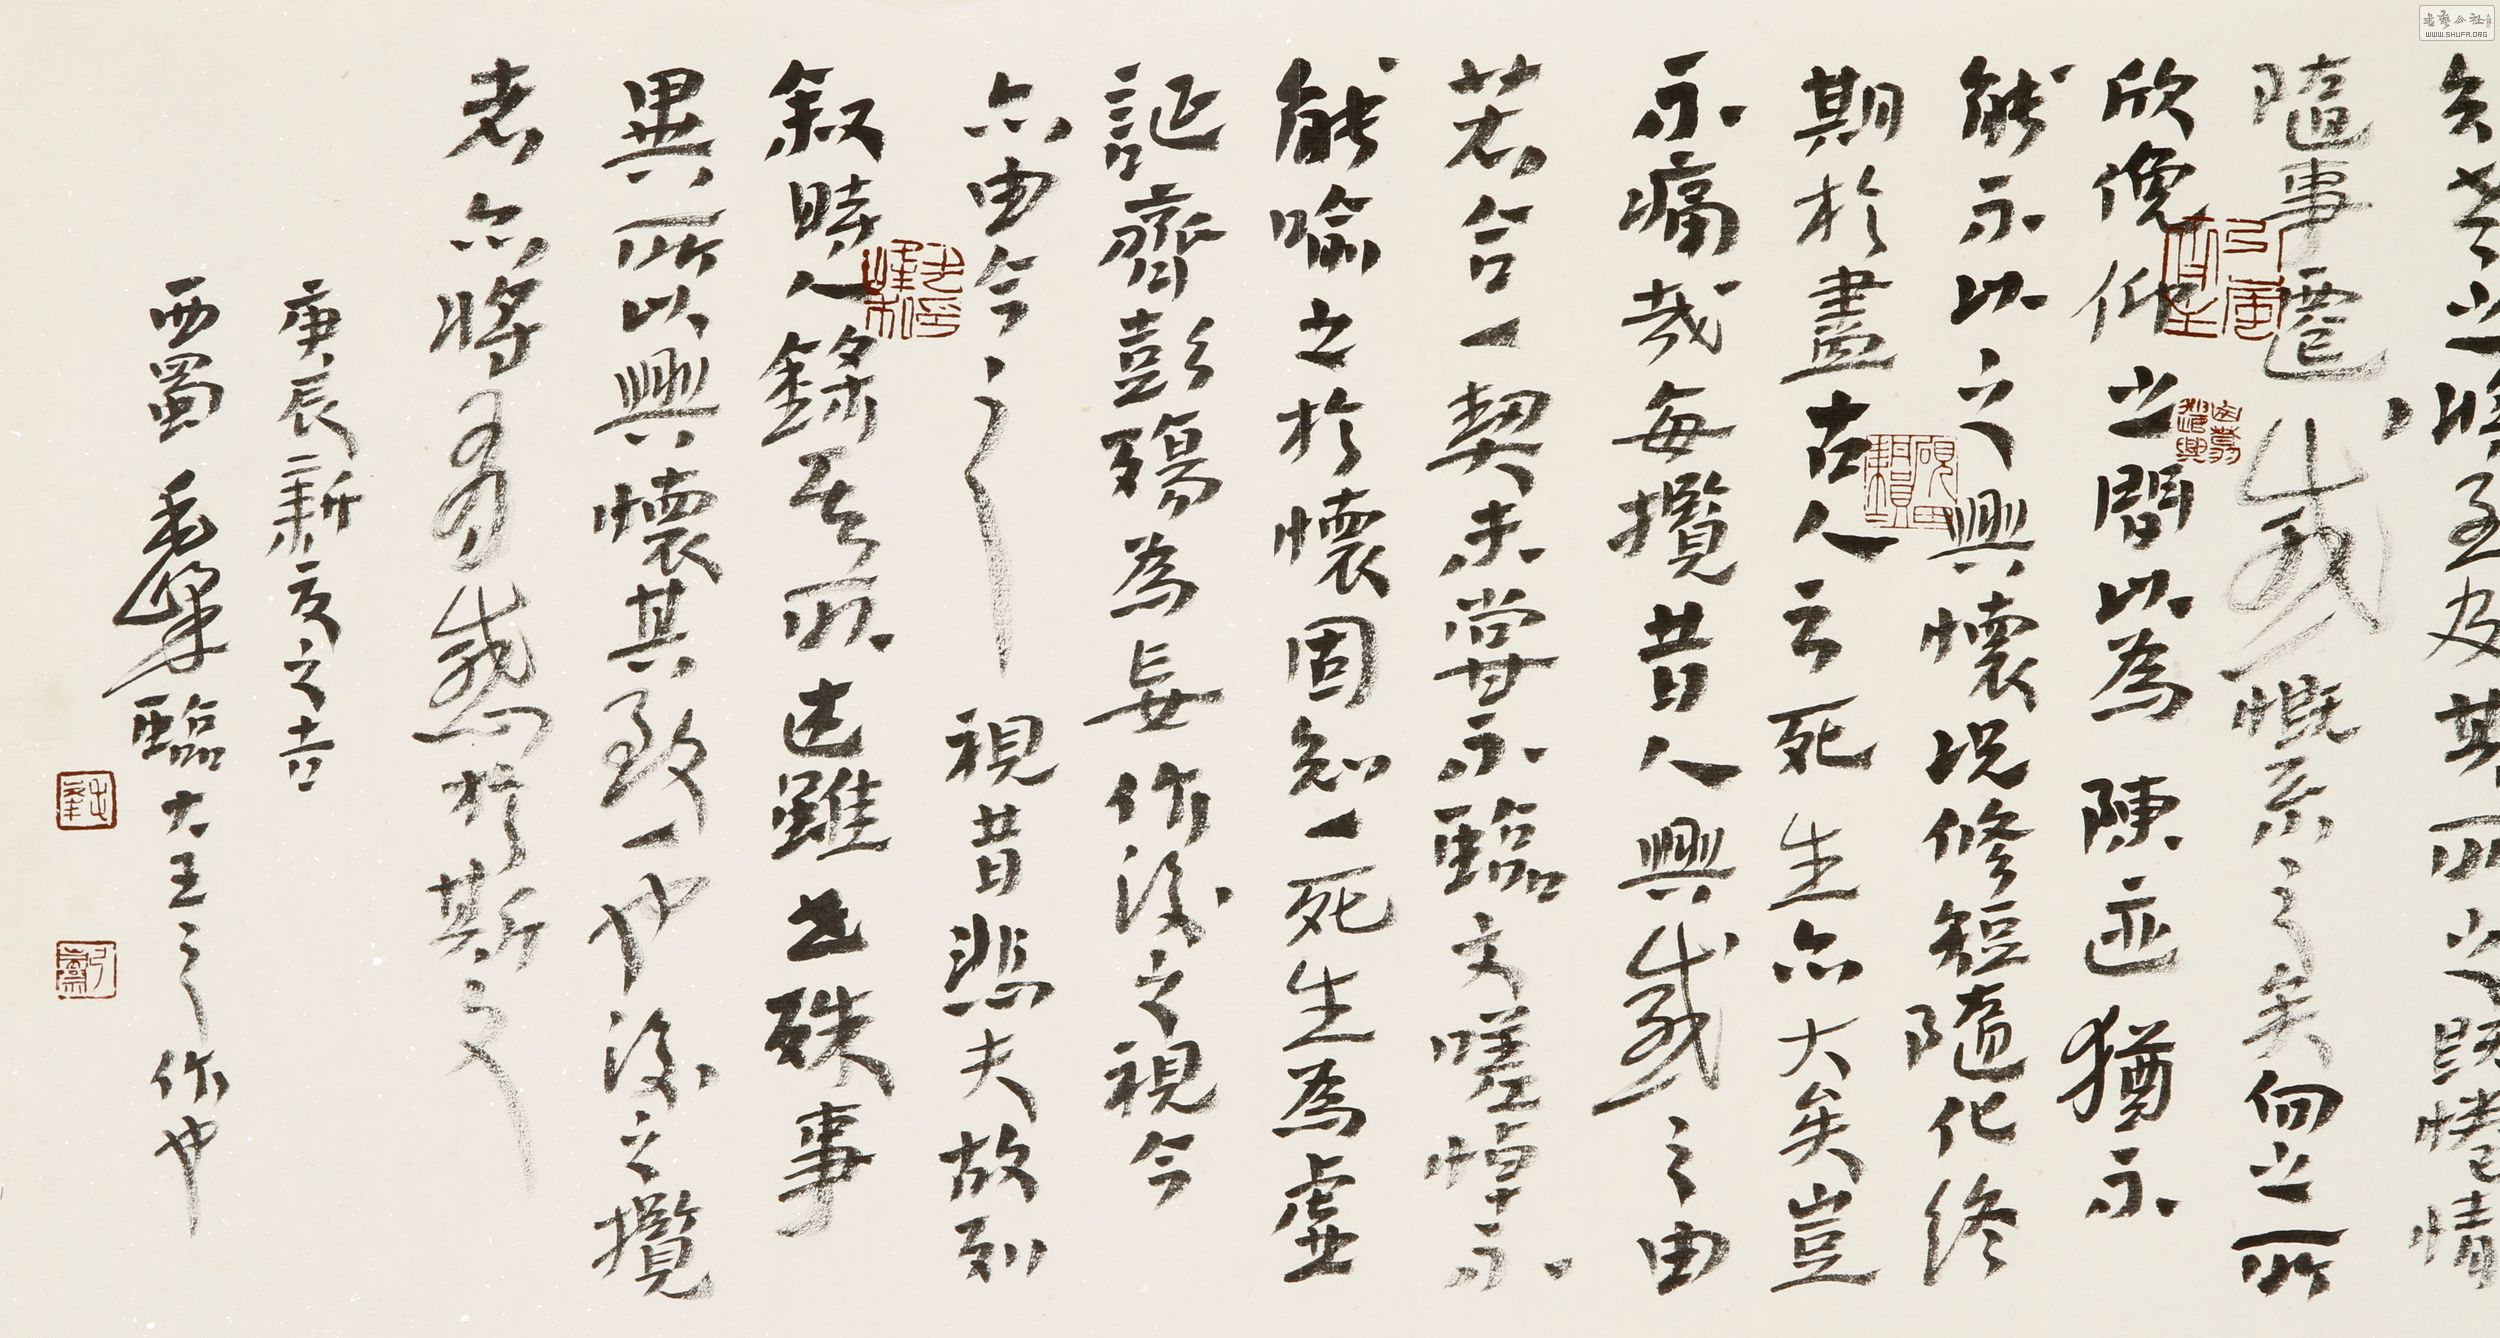 知老之將至及其所之既惓情
隨事遷感慨系之矣向之所
欣俛仰之間以為陳迹猶不
能不以之興懷況修短隨化終
期於盡古人云死生亦大矣豈
不痛哉每攬昔人興感之由
若合一契未嘗不臨文嗟悼不
能喻之於懷固知一死生為虛
誕齊彭殤為妄作後之視今
亦由今之視昔悲夫故列
叙時人錄其所述雖世殊事
異所以興懷其致一也後之攬
者亦將有感於斯文
庚辰新夏之吉
西蜀毛峯臨大王之作也
書藝公社
WWW.SHUFA.ORG